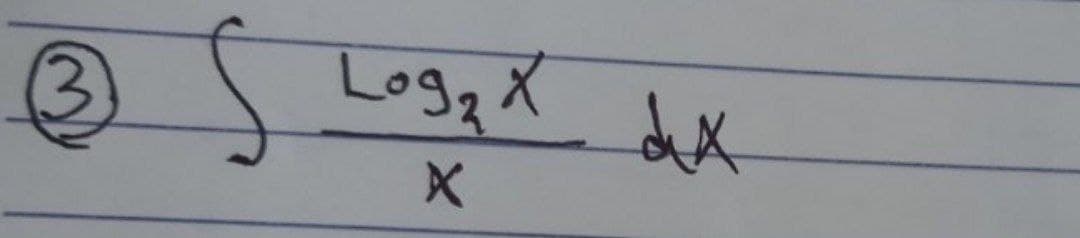 ③ ∫ Log₂ x / x dx